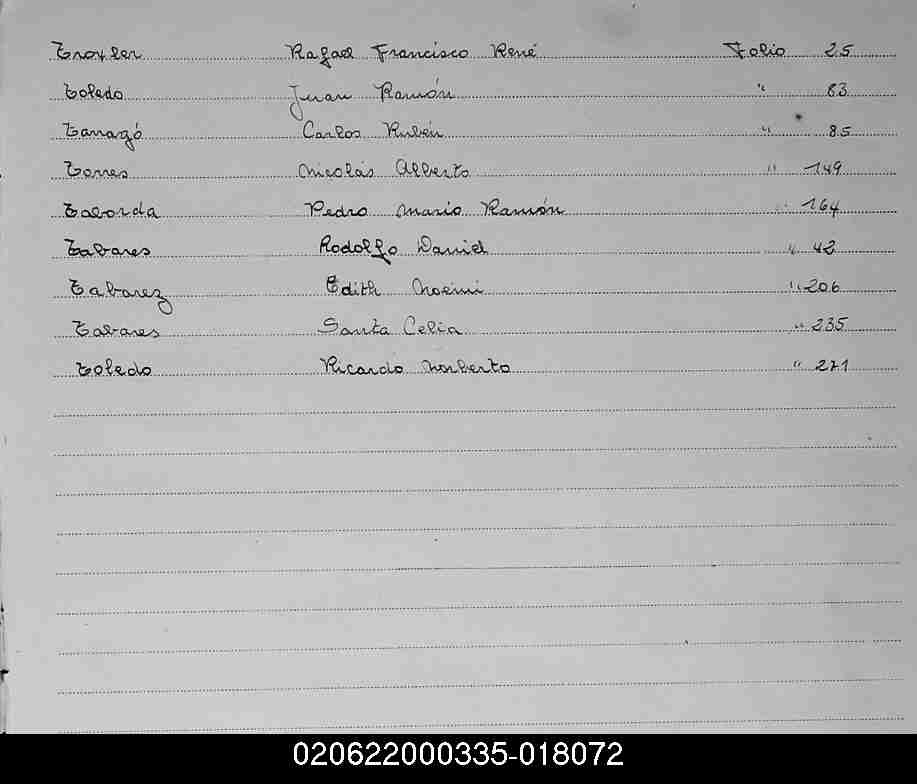 Troxler Rafael Francisco René Folio 25
Toledo Juan Ramón " 83
Tarragó Carlos Rubén " 85
Torres Nicolás Alberto " 149
Taborda Pedro Mario Ramón " 164
Tabares Rodolfo Daniel " 42
Tabarez Edith Noemi " 206
Tabares Santa Celia " 235
Toledo Ricardo Norberto " 271
020622000335-018072